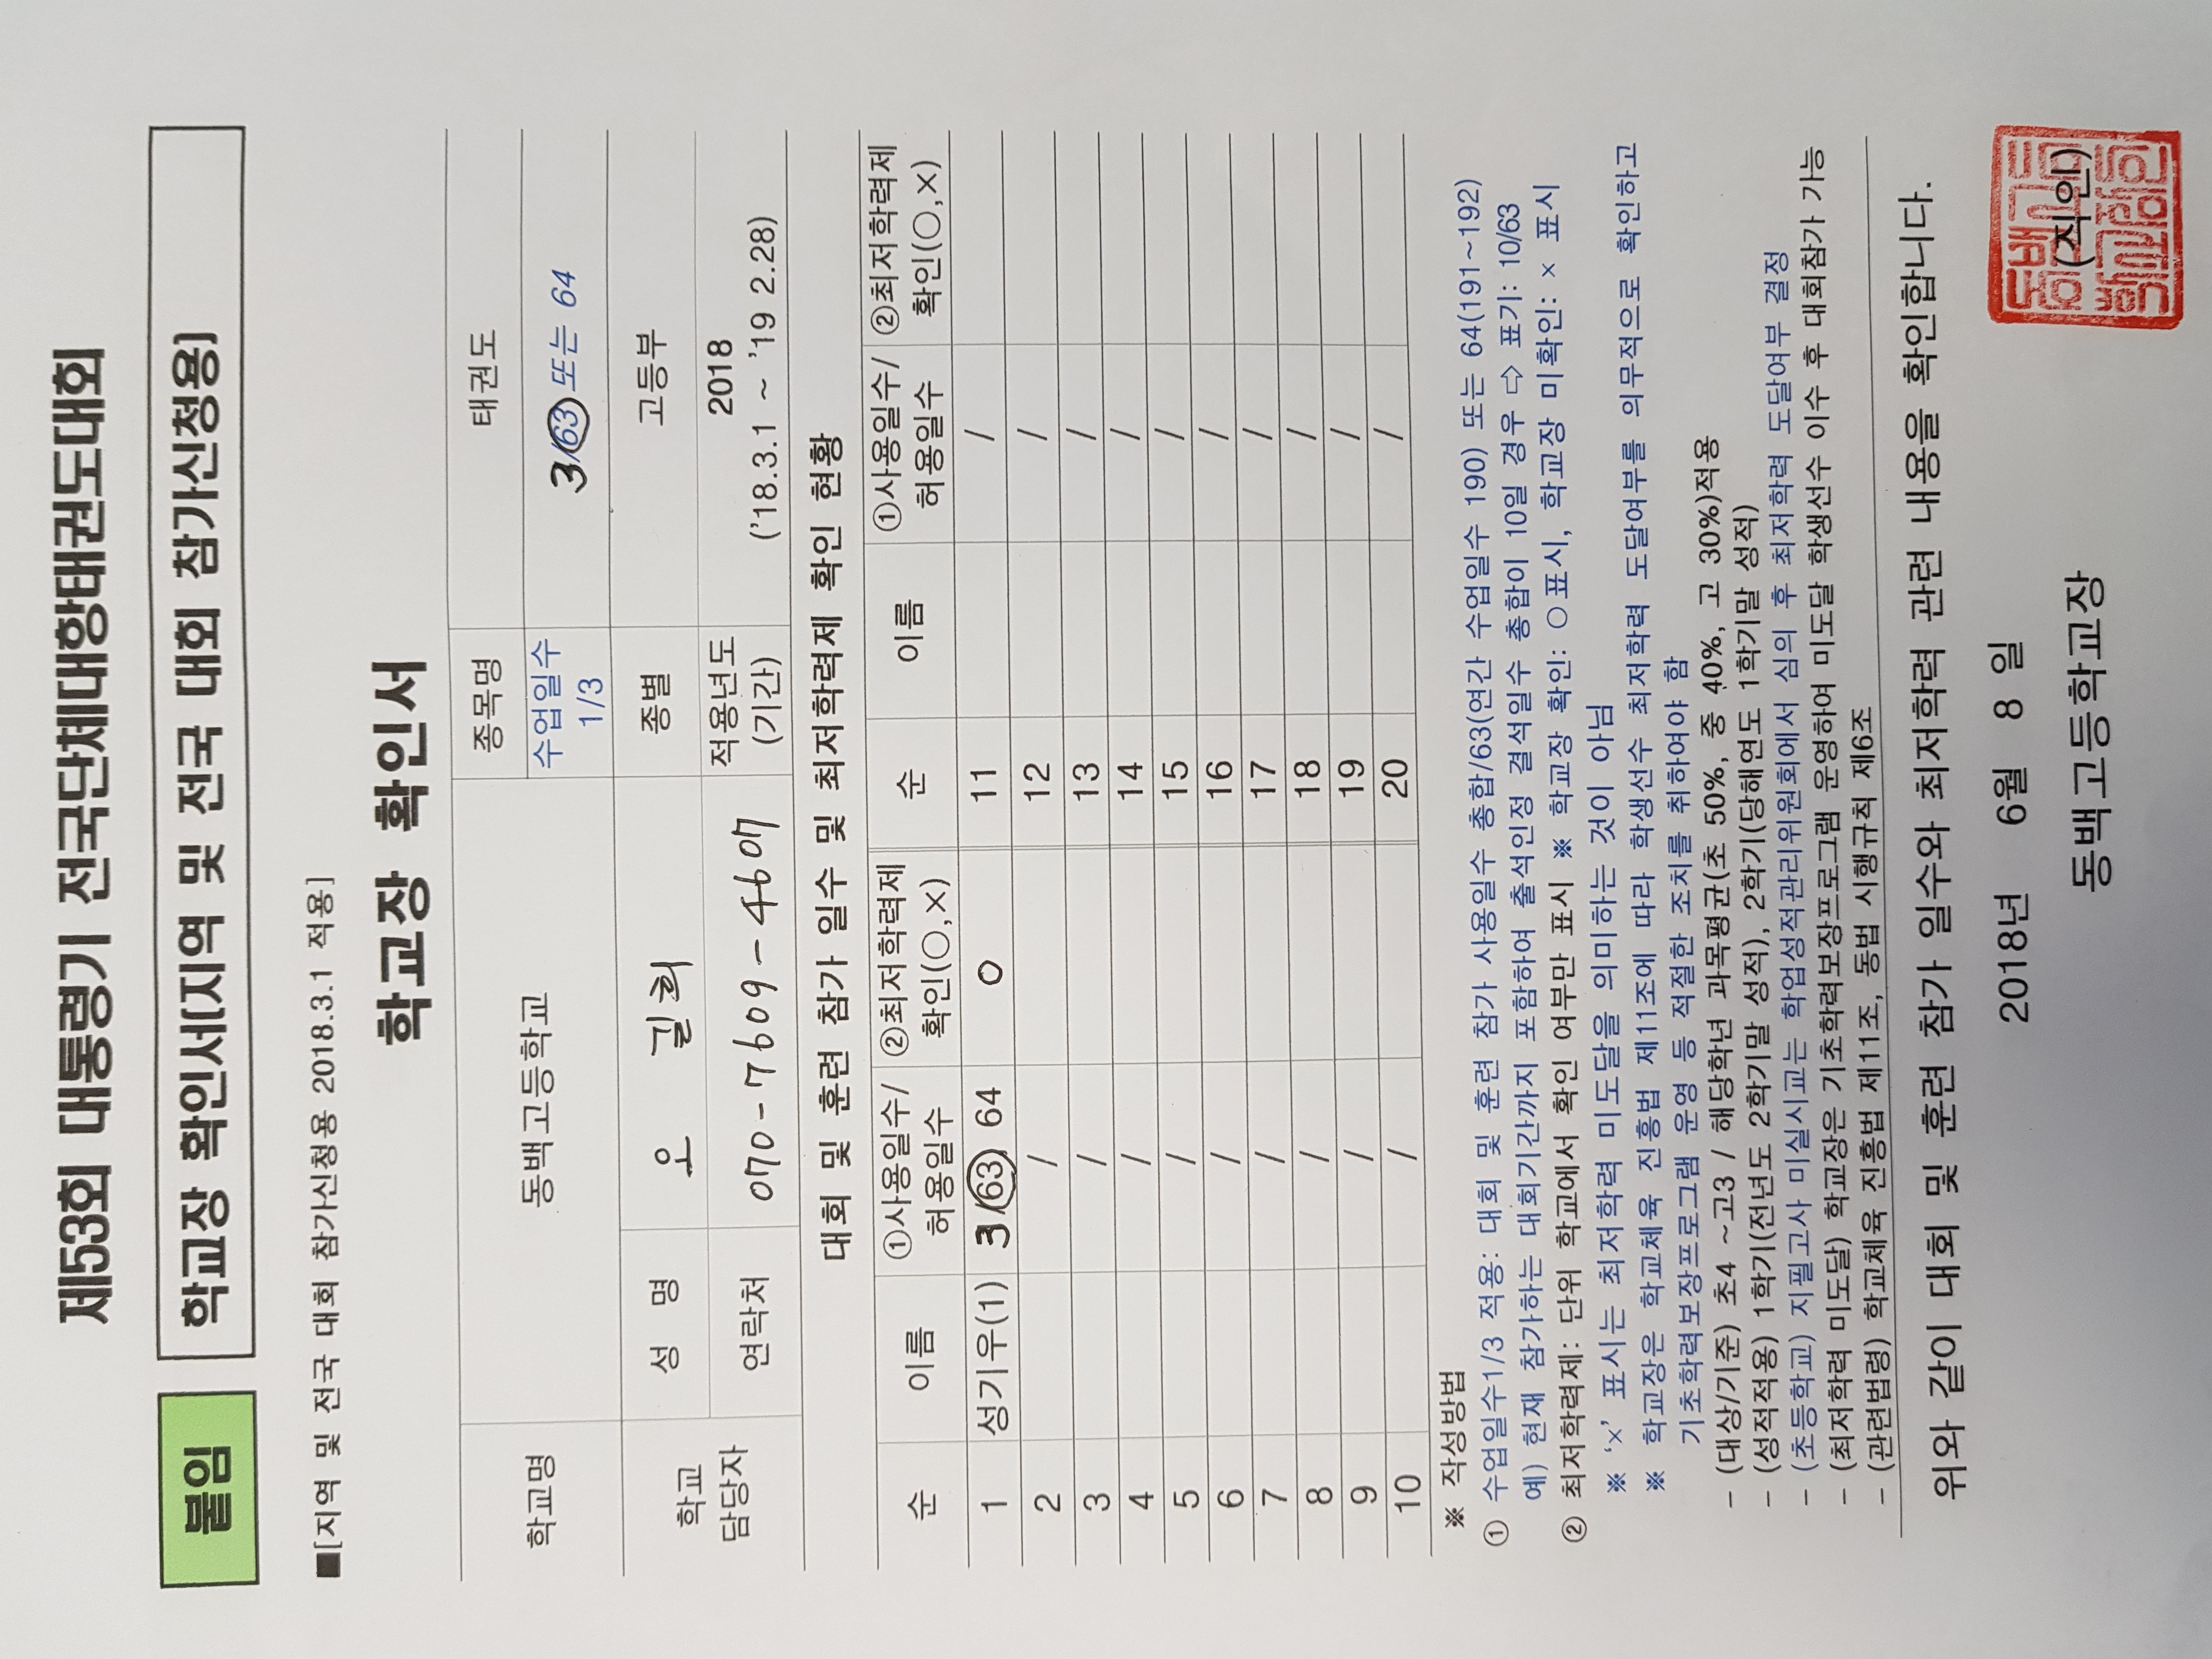 제53회 대통령기 전국단체대항태권도대회
붙임 학교장 확인서(지역 및 전국 대회 참가신청용)
■[지역 및 전국 대회 참가신청용 2018.3.1 적용]
학교장 확인서
학교명 동백고등학교 종목명 태권도
수업일수 1/3 3/63 또는 64
학교 담당자 성 명 오 길희 종별 고등부
연락처 070-7609-4607 적용년도 (기간) 2018 ('18.3.1 ~ '19 2.28)
대회 및 훈련 참가 일수 및 최저학력제 확인 현황
순 이름 ①사용일수/허용일수 ②최저학력제 확인(○,×) 순 이름 ①사용일수/허용일수 ②최저학력제 확인(○,×)
1 성기우(1) 3/63, 64 ○ 11 /
2 / 12 /
3 / 13 /
4 / 14 /
5 / 15 /
6 / 16 /
7 / 17 /
8 / 18 /
9 / 19 /
10 / 20 /
※ 작성방법
① 수업일수1/3 적용: 대회 및 훈련 참가 사용일수 총합/63(연간 수업일수 190) 또는 64(191~192)
예) 현재 참가하는 대회기간까지 포함하여 출석인정 결석일수 총합이 10일 경우 ⇨ 표기: 10/63
② 최저학력제: 단위 학교에서 확인 여부만 표시 ※ 학교장 확인: ○표시, 학교장 미확인: × 표시
※ '×' 표시는 최저학력 미도달을 의미하는 것이 아님
※ 학교장은 학교체육 진흥법 제11조에 따라 학생선수 최저학력 도달여부를 의무적으로 확인하고
기초학력보장프로그램 운영 등 적절한 조치를 취하여야 함
- (대상/기준) 초4 ~고3 / 해당학년 과목평균(초 50%, 중 40%, 고 30%)적용
- (성적적용) 1학기(전년도 2학기말 성적), 2학기(당해연도 1학기말 성적)
- (초등학교) 지필고사 미실시교는 학업성적관리위원회에서 심의 후 최저학력 도달여부 결정
- (최저학력 미도달) 학교장은 기초학력보장프로그램 운영하여 미도달 학생선수 이수 후 대회참가 가능
- (관련법령) 학교체육 진흥법 제11조, 동법 시행규칙 제6조
위와 같이 대회 및 훈련 참가 일수와 최저학력 관련 내용을 확인합니다.
2018년 6월 8 일
동백고등학교장 (직인)